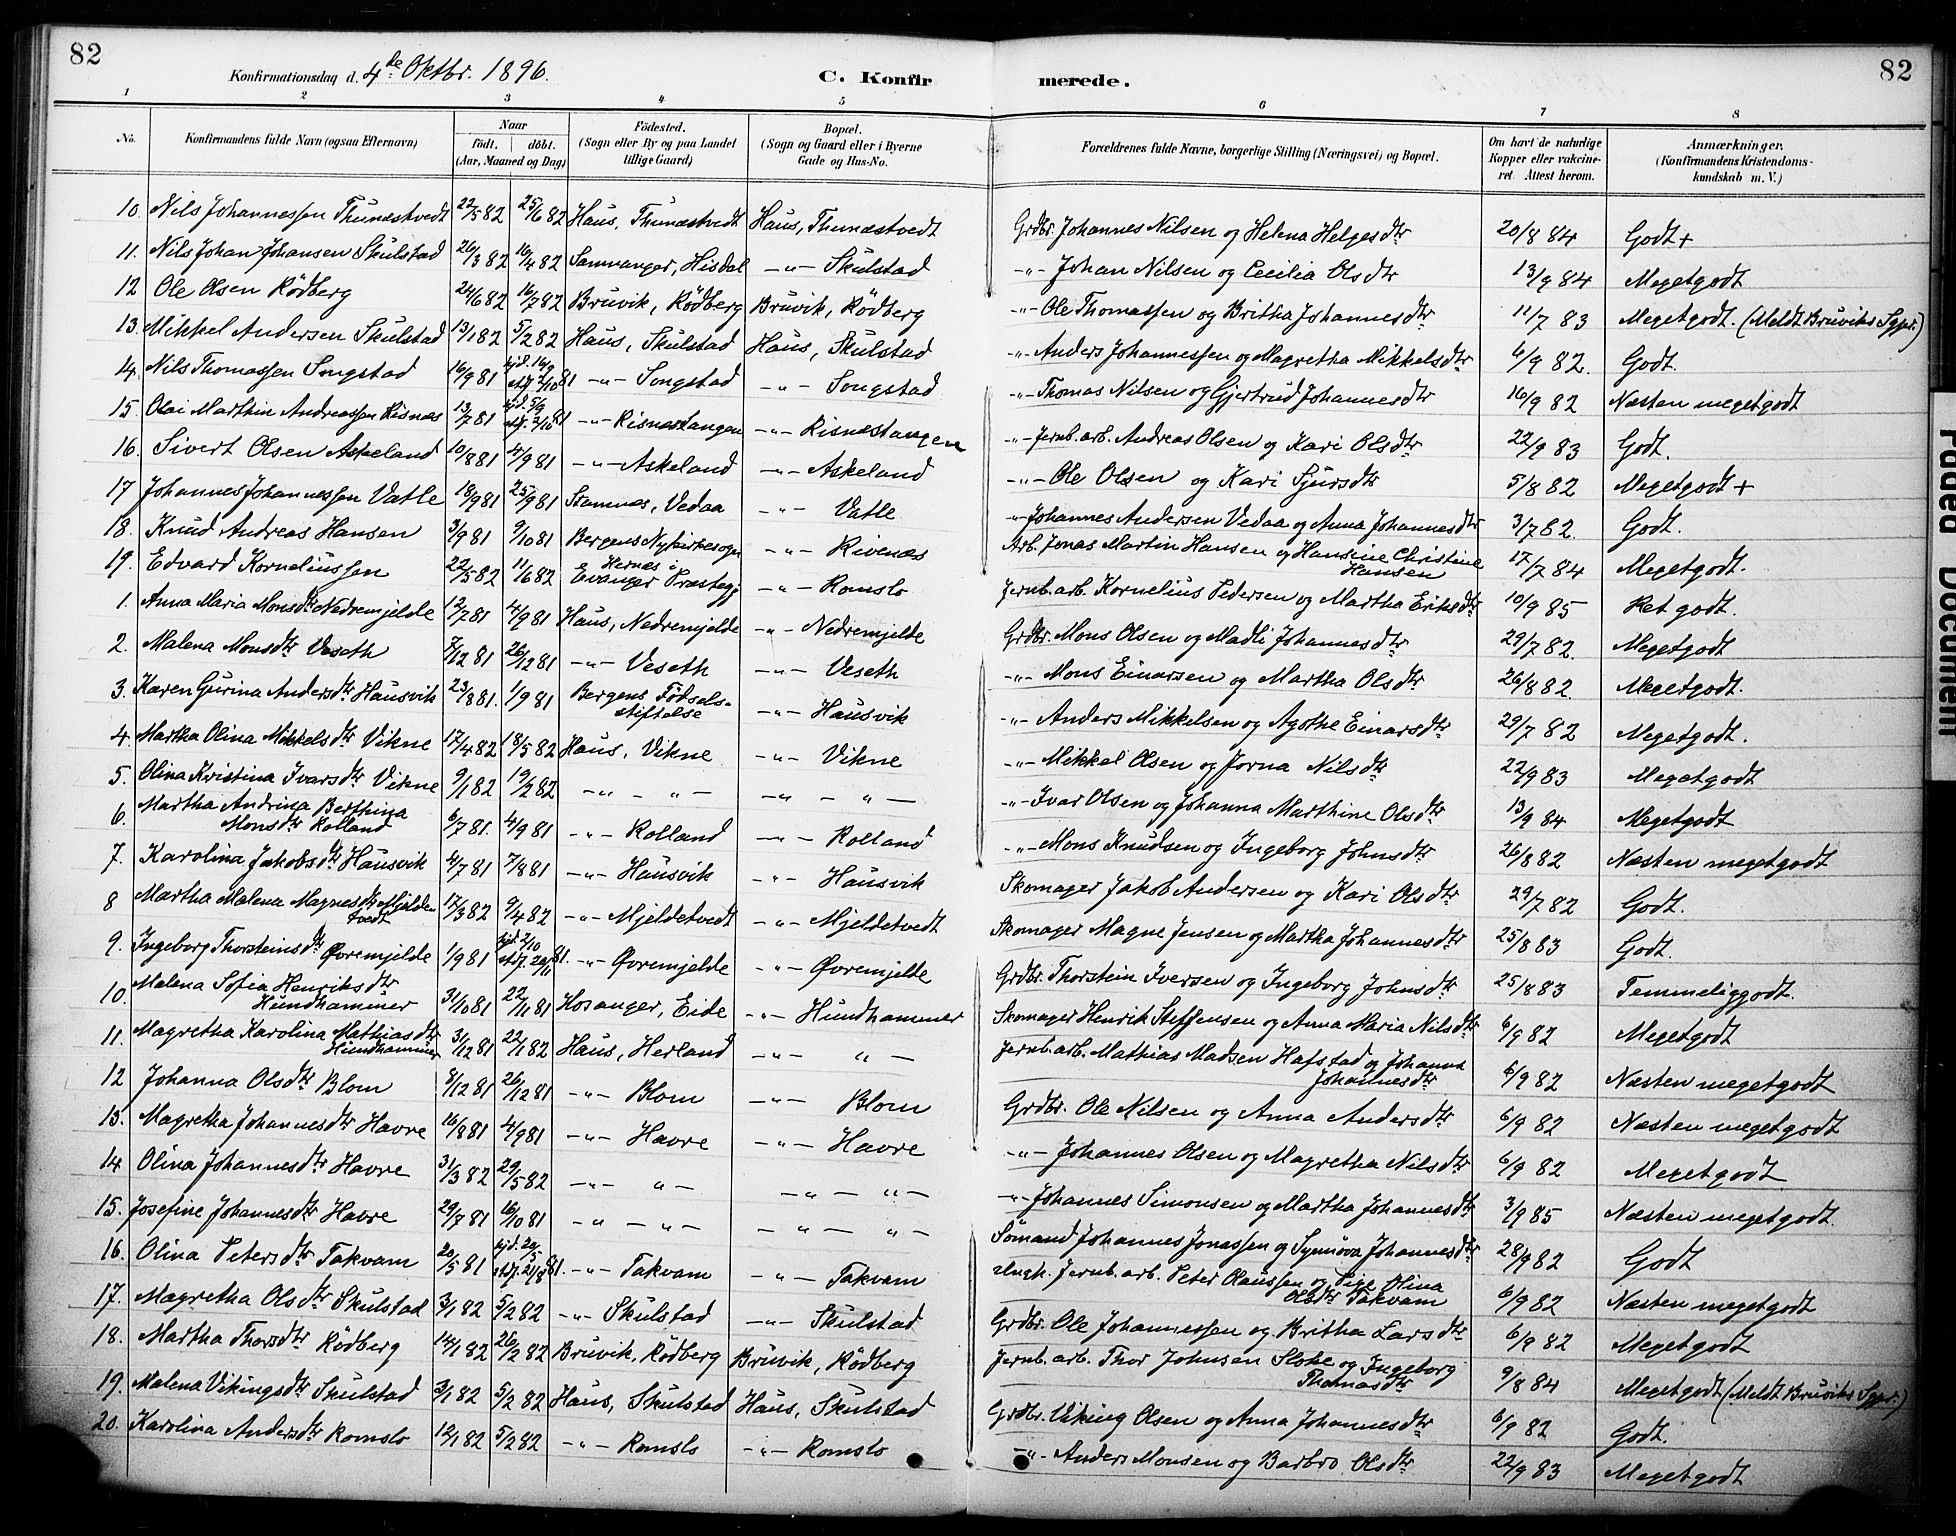 82
Konfirmationsdag d. 4de Oktbr. 1896.
C. Konfirmerede.
82
1 2 3 4 5 6 7 8
No. Konfirmandens fulde Navn (ogsaa Efternavn) Naar født. døbt. (Aar, Maaned og Dag) Fødested. (Sogn eller By og paa Landet tillige Gaard) Bopæl. (Sogn og Gaard eller i Byerne Gade og Hus-No. Forældrenes fulde Navne, borgerlige Stilling (Næringsvei) og Bopæl. Om havt de naturlige Kopper eller vakcineret. Attest herom. Anmærkninger. (Konfirmandens Kristendomskundskab m. V.)
10. Nils Johannessen Thunæstvedt 22/5 82 25/6 82 Haus, Thunæstvedt Haus, Thunæstvedt Grdbr. Johannes Nilsen og Helena Helgesdtr 20/8 84 Godt +
11. Nils Johan Johansen Skulstad 26/3 82 16/4 82 Samnanger, Hisdal -"- Skulstad -"- Johan Nilsen og Cecilia Olsdtr 13/9 84 Megetgodt
12 Ole Olsen Rödberg 24/6 82 16/7 82 Bruvik, Rödberg Bruvik, Rödberg -"- Ole Thomassen og Britha Johannesdtr 11/7 83 Megetgodt. (Meldt Bruviks Sgpr.)
13. Mikkel Andersen Skulstad 13/1 82 5/2 82 Haus, Skulstad Haus, Skulstad -"- Anders Johannessen og Magretha Mikkelsdtr 6/9 82. Godt.
14. Nils Thomassen Songstad 16/9 81 hjd. 16/9 stdf. 2/10 81 -"- Songstad -"- Songstad -"- Thomas Nilsen og Gjertrud Johannesdtr 16/9 82 Næsten megetgodt
15 Olai Marthin Andreassen Risnæs 13/7 81 hjd. 5/9 stdf. 2/10 81 -"- Risnæstangen -"- Risnæstangen -"- Jernb. arb. Andreas Olsen og Kari Olsdtr 22/9 83 Godt.
16. Sivert Olsen Askeland 10/8 81 4/9 81 -"- Askeland -"- Askeland -"- Ole Olsen og Kari Sjursdtr 5/8 82 Megetgodt +
17 Johannes Johannessen Vatle 18/9 81 25/9 81 Stamnes, Vedaa -"- Vatle -"- Johannes Andersen Vedaa og Anna Johannesdtr 3/7 82. Godt.
18. Knud Andreas Hansen 3/9 81 9/10 81 Bergens Nykirkesogn -"- Rivenæs Arb. Jonas Martin Hansen og Hansine Christine Hansen 17/7 84 Megetgodt.
19. Edvard Korneliussen 22/5 82 11/6 82 Hernæs i Evanger Præstegj -"- Romslo Jernb. arb. Kornelius Pedersen og Martha Eriksdtr 10/9 85 Ret godt.
1. Anna Maria Monsdtr Nedremjelde 12/7 81 4/9 81 Haus, Nedremjelde -"- Nedremjelde Grdbr. Mons Olsen og Madli Johannesdtr 29/7 82. Megetgodt
2. Malena Monsdtr Veseth 7/12 81 26/12 81 -"- Veseth -"- Veseth -"- Mons Einarsen og Martha Olsdtr 26/8 82 Megetgodt.
3. Karen Gurina Andersdtr Hausvik 23/8 81. 1/9 81 Bergens Fødselsstiftelse -"- Hausvik -"- Anders Mikkelsen og Agothe Einarsdtr 29/7 82 Megetgodt.
4. Martha Olina Mikkelsdtr Vikne 17/4 82 18/5 82 Haus, Vikne -"- Vikne -"- Mikkel Olsen og Jorna Nilsdtr 22/9 83 Megetgodt
5. Olina Kristina Ivarsdtr Vikne 9/1 82 19/2 82 -"- -"- -"- -"- -"- Ivar Olsen og Johanna Marthine Olsdtr 13/9 84 Megetgodt
6. Martha Andrina Berthina Monsdtr Rolland 6/7 81. 4/9 81 -"- Rolland -"- Rolland -"- Mons Knudsen og Ingeborg Johnsdtr 26/8 82 Næsten megetgodt
7. Karolina Jakobsdtr Hausvik 4/7 81 7/8 81 -"- Hausvik -"- Hausvik Skomager Jakob Andersen og Kari Olsdtr 29/7 82 Godt.
8 Martha Malena Magnesdtr Mjeldetvedt 17/3 82 9/4 82 -"- Mjeldetvedt -"- Mjeldetvedt Skomager Magne Jensen og Martha Johannesdtr 25/8 83 Godt.
9. Ingeborg Thorsteinsdtr Øvremjelde 1/9 81 hjd. 2/10 stdf. 20/11 81. -"- Øvremjelde -"- Øvremjelde Grdbr. Thorstein Iversen og Ingeborg Johnsdtr 25/8 83 Temmeliggodt.
10. Malena Sofia Henriksdtr Hundhammer 31/10 81 22/11 81 Hosanger, Eide -"- Hundhammer Skomager Henrik Steffensen og Anna Maria Nilsdtr 6/9 82 Megetgodt
11. Magretha Karolina Mathiasdtr Hundhammer 3/12 81 22/1 82 Haus, Herland -"- " - Jernb. arb. Mathias Madsen Hafstad og Johanna Johannesdtr 6/9 82 Næsten megetgodt
12 Johanna Olsdtr Blom 8/12 81 26/12 81 -"- Blom -"- Blom Grdbr. Ole Nilsen og Anna Andersdtr 6/9 82 Næsten megetgodt
13. Magretha Johannesdtr Havre 16/8 81 4/9 81 -"- Havre -"- Havre -"- Johannes Olsen og Magretha Nilsdtr 6/9 82 Megetgodt
14 Olina Johannesdtr Havre 31/3 82 29/5 82 -"- "- -"- "- -"- Johannes Simonsen og Martha Johannesdtr 3/9 85 Næsten megetgodt.
15. Josefine Johannesdtr Havre 29/7 81 16/10 81 -"- -"- -"- "- Sömand Johannes Jonassen og Synnöva Johannesdtr 28/9 82 Godt
16. Olina Petersdtr Takvam 20/5 81 hjd. 20/5 stdf. 21/8 81. -"- Takvam -"- Takvam Jernb. arb. Peter Olaussen og Pige Olina Olsdtr Takvam 6/9 82 Næsten megetgodt
17. Magretha Olsdtr Skulstad 3/1 82 5/2 82 -"- Skulstad -"- Skulstad Grdbr. Ole Johannessen og Britha Larsdtr 6/9 82 Megetgodt
18. Martha Thorsdtr Rödberg 14/1 82 26/2 82 Bruvik, Rödberg Bruvik, Rödberg Jernb. arb. Thor Johnsen og Ingeborg Thomasdtr 9/8 84 Megetgodt (Meldt Bruviks Sgpr.)
19. Malena Vikingsdtr Skulstad 3/1 82 5/2 82 Haus, Skulstad Haus, Skulstad Grdbr. Viking Olsen og Anna Johannesdtr 6/9 82 Godt.
20. Karolina Andersdtr Romslo 12/1 82 5/2 82 -"- Romslo -"- Romslo -"- Anders Monsen og Barbro Olsdtr 22/9 83 Megetgodt
Faded Document